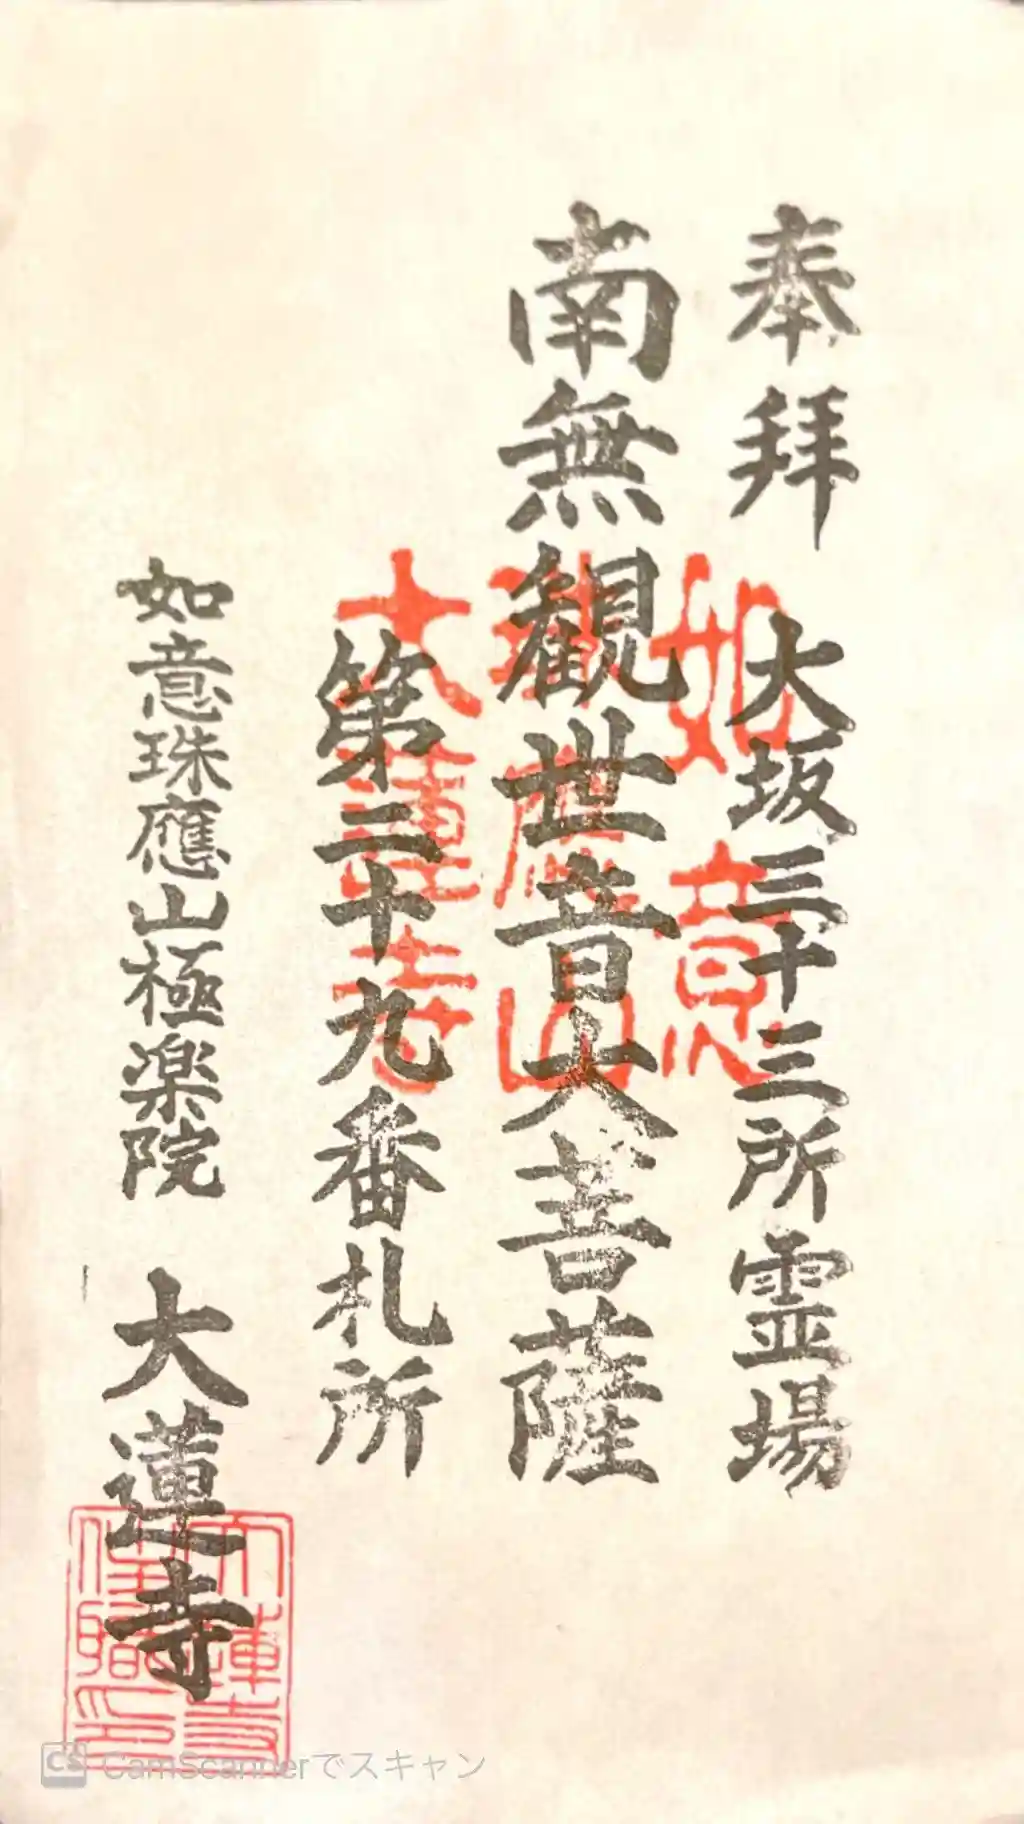 奉拜
大坂三十三所霊場
南無観世音大菩薩
第二十九番札所
如意珠應山極楽院
大蓮寺
如意
珠應山
大蓮寺
大蓮寺
住職印
CS CamScannerでスキャン